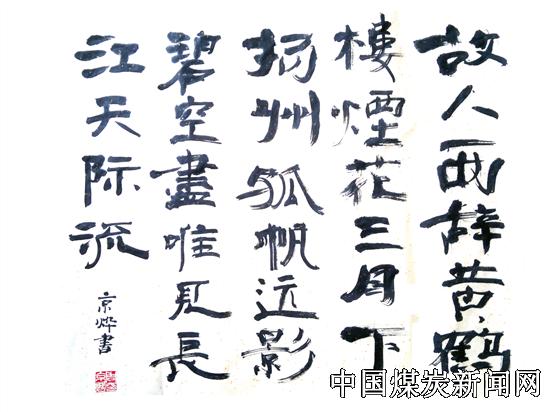 故人西辞黄鹤
楼煙花三月下
扬州孤帆远影
碧空盡唯見長
江天际流
京烨書
中国煤炭新闻网